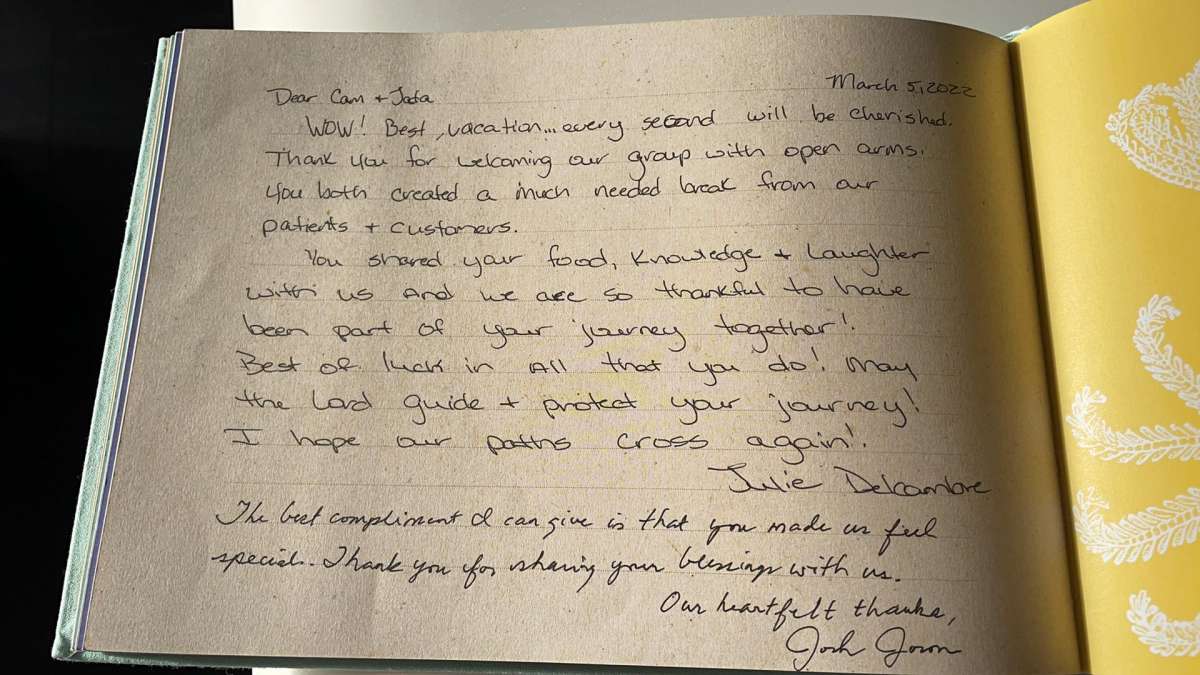 March 5, 2022
Dear Cam + Jada
WOW! Best vacation... every second will be cherished.
Thank you for welcoming our group with open arms.
You both created a much needed break from our
patients + customers.
You shared your food, knowledge + laughter
with us and we are so thankful to have
been part of your journey together!
Best of luck in all that you do! May
the Lord guide + protect your journey!
I hope our paths cross again!
Julie Delcambre
The best compliment I can give is that you made us feel
special. Thank you for sharing your blessings with us.
Our heartfelt thanks,
Josh